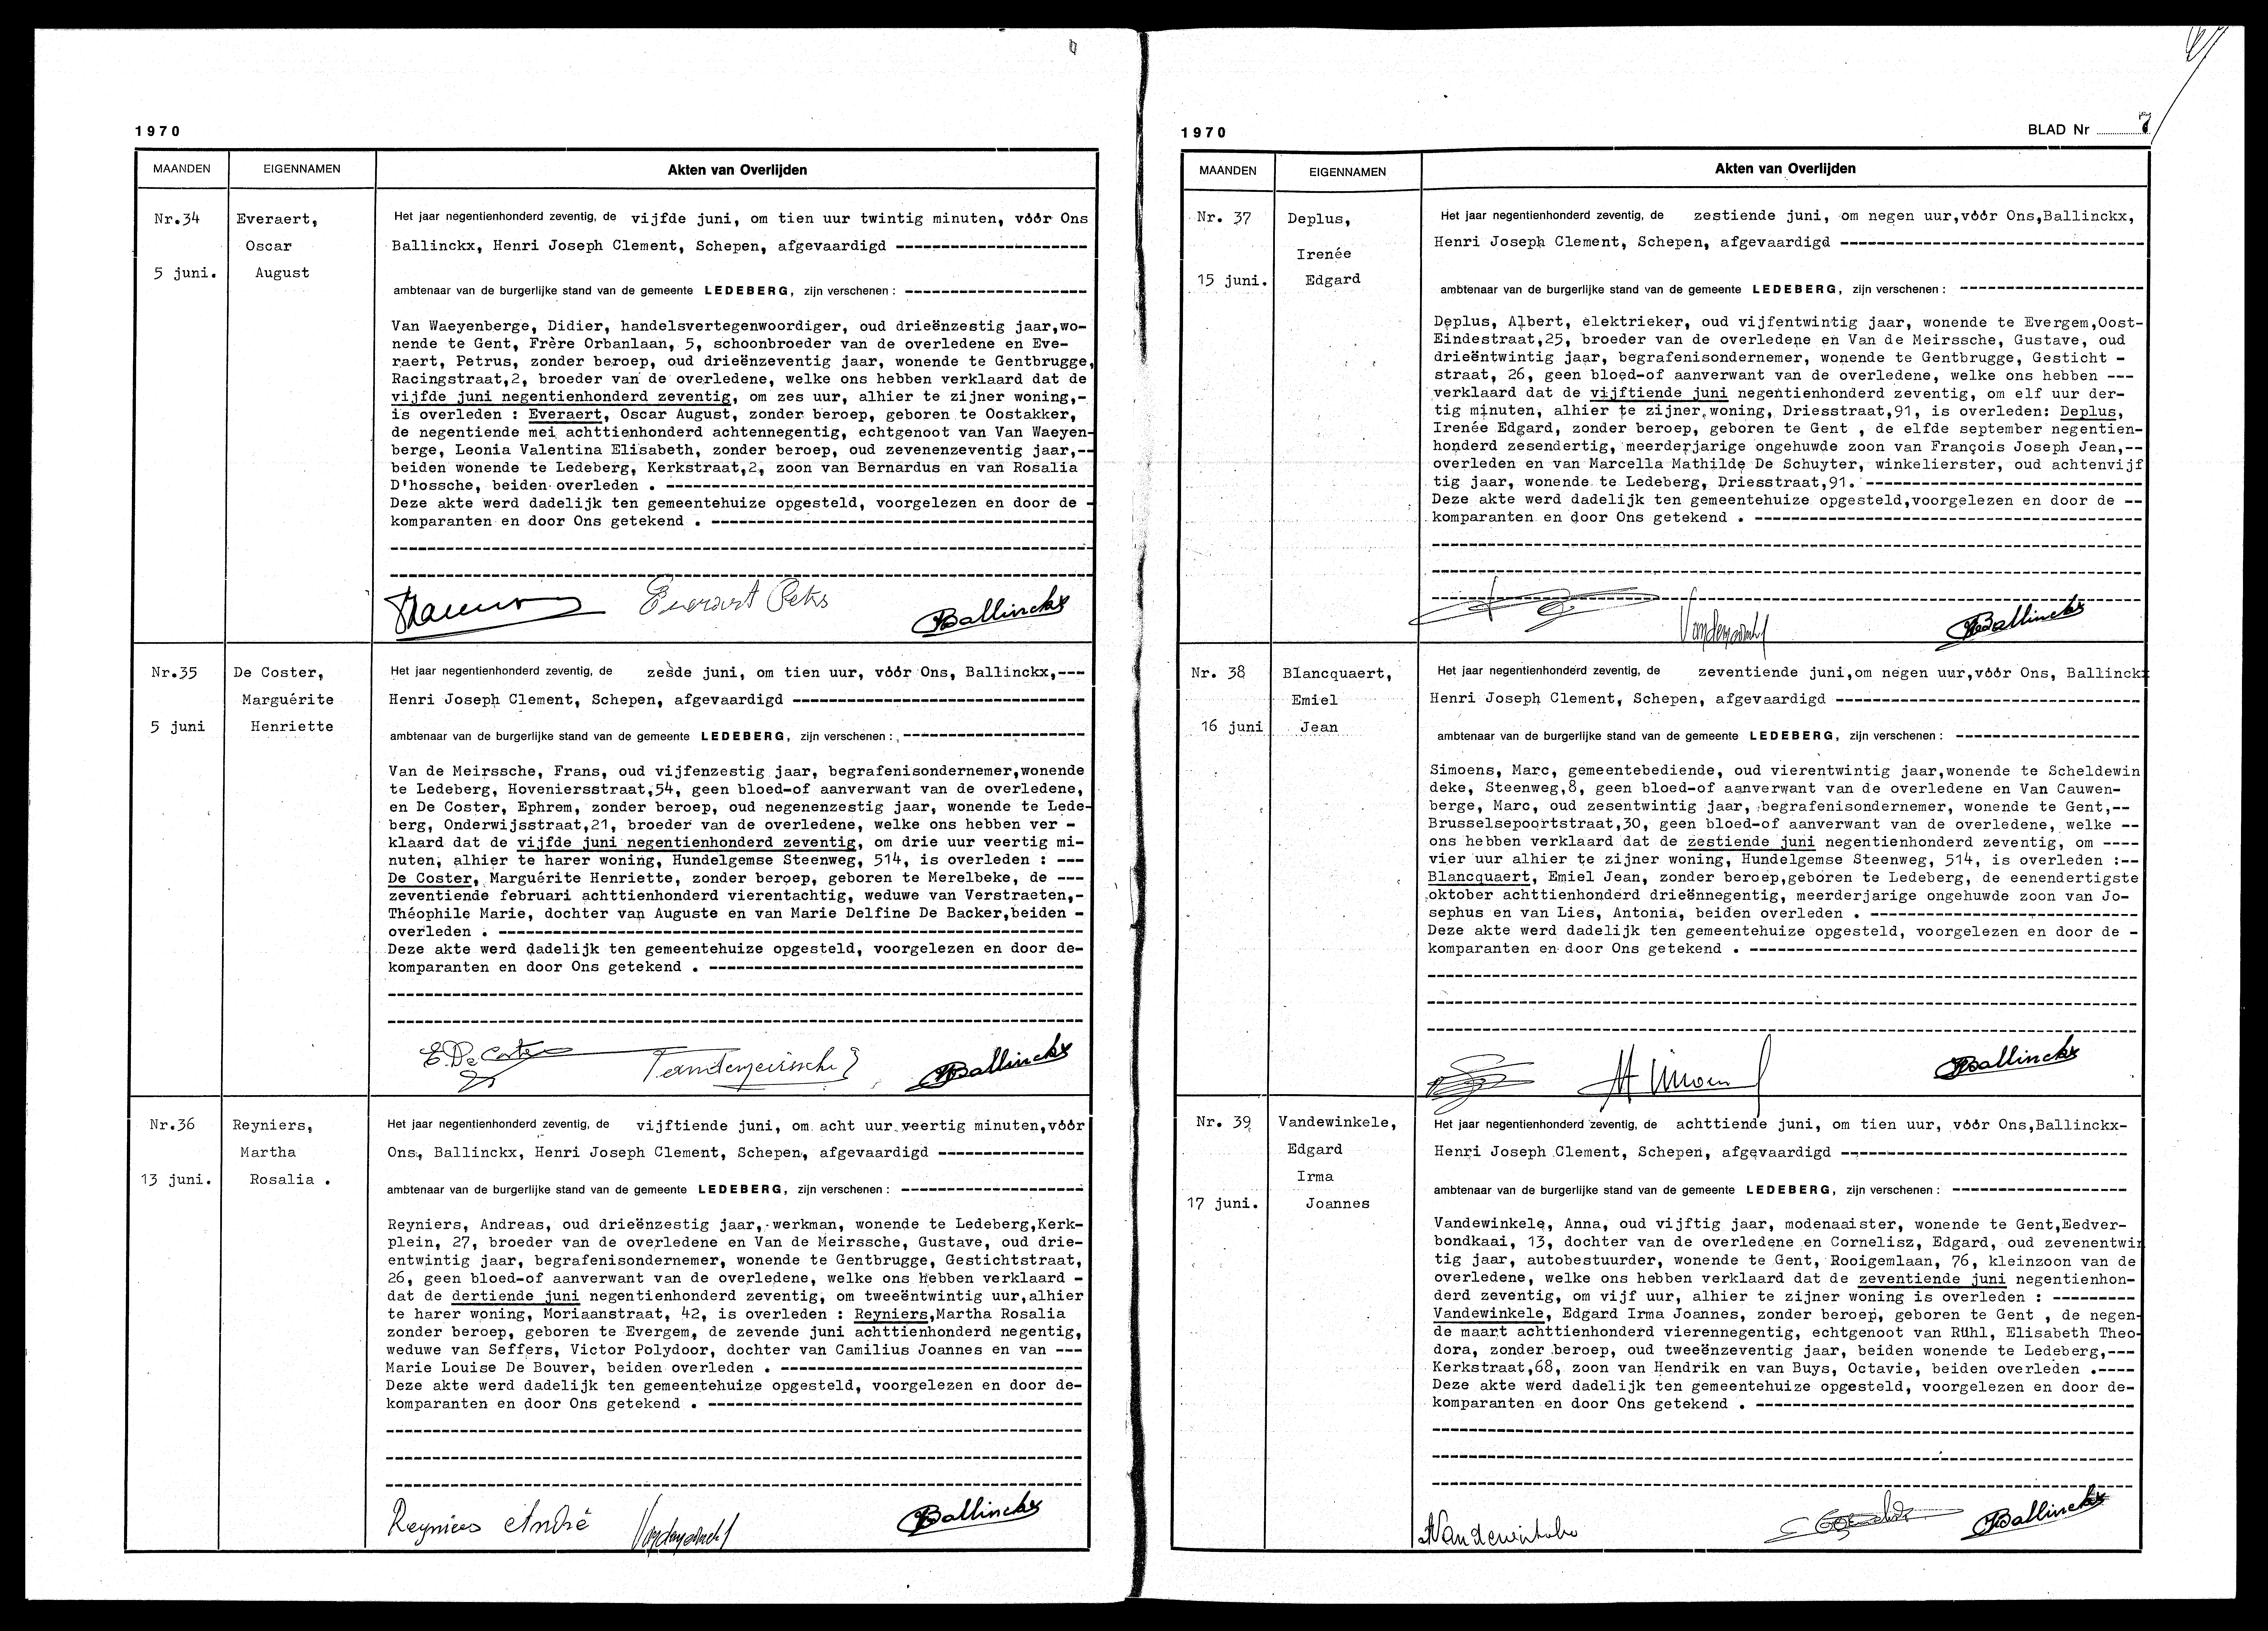 1970
MAANDEN EIGENNAMEN Akten van Overlijden
Nr.34
5 juni.
Everaert,
Oscar
August
Het jaar negentienhonderd zeventig, de vijfde juni, om tien uur twintig minuten, vóór Ons
Ballinckx, Henri Joseph Clement, Schepen, afgevaardigd ---------------------
ambtenaar van de burgerlijke stand van de gemeente LEDEBERG, zijn verschenen : --------------------
Van Waeyenberge, Didier, handelsvertegenwoordiger, oud drieënzestig jaar,wo-
nende te Gent, Frère Orbanlaan, 5, schoonbroeder van de overledene en Eve-
raert, Petrus, zonder beroep, oud drieënzeventig jaar, wonende te Gentbrugge,
Racingstraat,2, broeder van de overledene, welke ons hebben verklaard dat de
vijfde juni negentienhonderd zeventig, om zes uur, alhier te zijner woning,-
is overleden : Everaert, Oscar August, zonder beroep, geboren te Oostakker,
de negentiende mei achttienhonderd achtennegentig, echtgenoot van Van Waeyen-
berge, Leonia Valentina Elisabeth, zonder beroep, oud zevenenzeventig jaar,--
beiden wonende te Ledeberg, Kerkstraat,2, zoon van Bernardus en van Rosalia
D'hossche, beiden overleden . ------------------------------------------------
Deze akte werd dadelijk ten gemeentehuize opgesteld, voorgelezen en door de -
komparanten en door Ons getekend . -------------------------------------------
Everaert Petrus
Ballinckx
Nr.35
5 juni
De Coster,
Marguérite
Henriette
Het jaar negentienhonderd zeventig, de zesde juni, om tien uur, vóór Ons, Ballinckx,---
Henri Joseph Clement, Schepen, afgevaardigd --------------------------------
ambtenaar van de burgerlijke stand van de gemeente LEDEBERG, zijn verschenen : --------------------
Van de Meirssche, Frans, oud vijfenzestig jaar, begrafenisondernemer,wonende
te Ledeberg, Hoveniersstraat,54, geen bloed-of aanverwant van de overledene,
en De Coster, Ephrem, zonder beroep, oud negenenzestig jaar, wonende te Lede-
berg, Onderwijsstraat,21, broeder van de overledene, welke ons hebben ver -
klaard dat de vijfde juni negentienhonderd zeventig, om drie uur veertig mi-
nuten, alhier te harer woning, Hundelgemse Steenweg, 514, is overleden : ---
De Coster, Marguérite Henriette, zonder beroep, geboren te Merelbeke, de ---
zeventiende februari achttienhonderd vierentachtig, weduwe van Verstraeten,-
Théophile Marie, dochter van Auguste en van Marie Delfine De Backer,beiden -
overleden . ----------------------------------------------------------------
Deze akte werd dadelijk ten gemeentehuize opgesteld, voorgelezen en door de-
komparanten en door Ons getekend . -----------------------------------------
E. De Coster
Ballinckx
Nr.36
13 juni.
Reyniers,
Martha
Rosalia .
Het jaar negentienhonderd zeventig, de vijftiende juni, om acht uur veertig minuten,vóór
Ons, Ballinckx, Henri Joseph Clement, Schepen, afgevaardigd ----------------
ambtenaar van de burgerlijke stand van de gemeente LEDEBERG, zijn verschenen : --------------------
Reyniers, Andreas, oud drieënzestig jaar, werkman, wonende te Ledeberg,Kerk-
plein, 27, broeder van de overledene en Van de Meirssche, Gustave, oud drie-
entwintig jaar, begrafenisondernemer, wonende te Gentbrugge, Gestichtstraat,
26, geen bloed-of aanverwant van de overledene, welke ons hebben verklaard -
dat de dertiende juni negentienhonderd zeventig, om tweeëntwintig uur,alhier
te harer woning, Moriaanstraat, 42, is overleden : Reyniers,Martha Rosalia
zonder beroep, geboren te Evergem, de zevende juni achttienhonderd negentig,
weduwe van Seffers, Victor Polydoor, dochter van Camilius Joannes en van ---
Marie Louise De Bouver, beiden overleden . ---------------------------------
Deze akte werd dadelijk ten gemeentehuize opgesteld, voorgelezen en door de-
komparanten en door Ons getekend . -----------------------------------------
Reyniers André
Ballinckx
1970 BLAD Nr 7
MAANDEN EIGENNAMEN Akten van Overlijden
Nr. 37
15 juni.
Deplus,
Irenée
Edgard
Het jaar negentienhonderd zeventig, de zestiende juni, om negen uur,vóór Ons,Ballinckx,
Henri Joseph Clement, Schepen, afgevaardigd ---------------------------------
ambtenaar van de burgerlijke stand van de gemeente LEDEBERG, zijn verschenen : --------------------
Deplus, Albert, elektrieker, oud vijfentwintig jaar, wonende te Evergem,Oost-
Eindestraat,25, broeder van de overledene en Van de Meirssche, Gustave, oud
drieëntwintig jaar, begrafenisondernemer, wonende te Gentbrugge, Gesticht -
straat, 26, geen bloed-of aanverwant van de overledene, welke ons hebben ---
verklaard dat de vijftiende juni negentienhonderd zeventig, om elf uur der-
tig minuten, alhier te zijner woning, Driesstraat,91, is overleden: Deplus,
Irenée Edgard, zonder beroep, geboren te Gent , de elfde september negentien-
honderd zesendertig, meerderjarige ongehuwde zoon van François Joseph Jean,--
overleden en van Marcella Mathilde De Schuyter, winkelierster, oud achtenvijf
tig jaar, wonende te Ledeberg, Driesstraat,91. ------------------------------
Deze akte werd dadelijk ten gemeentehuize opgesteld,voorgelezen en door de --
komparanten en door Ons getekend . ------------------------------------------
Ballinckx
Nr. 38
16 juni
Blancquaert,
Emiel
Jean
Het jaar negentienhonderd zeventig, de zeventiende juni,om negen uur,vóór Ons, Ballinckx
Henri Joseph Clement, Schepen, afgevaardigd ---------------------------------
ambtenaar van de burgerlijke stand van de gemeente LEDEBERG, zijn verschenen : --------------------
Simoens, Marc, gemeentebediende, oud vierentwintig jaar,wonende te Scheldewin
deke, Steenweg,8, geen bloed-of aanverwant van de overledene en Van Cauwen-
berge, Marc, oud zesentwintig jaar, begrafenisondernemer, wonende te Gent,--
Brusselsepoortstraat,30, geen bloed-of aanverwant van de overledene, welke --
ons hebben verklaard dat de zestiende juni negentienhonderd zeventig, om ----
vier uur alhier te zijner woning, Hundelgemse Steenweg, 514, is overleden :--
Blancquaert, Emiel Jean, zonder beroep,geboren te Ledeberg, de eenendertigste
oktober achttienhonderd drieënnegentig, meerderjarige ongehuwde zoon van Jo-
sephus en van Lies, Antonia, beiden overleden . -----------------------------
Deze akte werd dadelijk ten gemeentehuize opgesteld, voorgelezen en door de -
komparanten en door Ons getekend . ------------------------------------------
Ballinckx
Nr. 39
17 juni.
Vandewinkele,
Edgard
Irma
Joannes
Het jaar negentienhonderd zeventig, de achttiende juni, om tien uur, vóór Ons,Ballinckx-
Henri Joseph Clement, Schepen, afgevaardigd -------------------------------
ambtenaar van de burgerlijke stand van de gemeente LEDEBERG, zijn verschenen : -------------------
Vandewinkele, Anna, oud vijftig jaar, modenaaister, wonende te Gent,Eedver-
bondkaai, 13, dochter van de overledene en Cornelisz, Edgard, oud zevenentwin
tig jaar, autobestuurder, wonende te Gent, Rooigemlaan, 76, kleinzoon van de
overledene, welke ons hebben verklaard dat de zeventiende juni negentienhon-
derd zeventig, om vijf uur, alhier te zijner woning is overleden : ---------
Vandewinkele, Edgard Irma Joannes, zonder beroep, geboren te Gent , de negen-
de maart achttienhonderd vierennegentig, echtgenoot van Rühl, Elisabeth Theo-
dora, zonder beroep, oud tweeënzeventig jaar, beiden wonende te Ledeberg,---
Kerkstraat,68, zoon van Hendrik en van Buys, Octavie, beiden overleden .----
Deze akte werd dadelijk ten gemeentehuize opgesteld, voorgelezen en door de-
komparanten en door Ons getekend . -----------------------------------------
AVandewinkele
Ballinckx